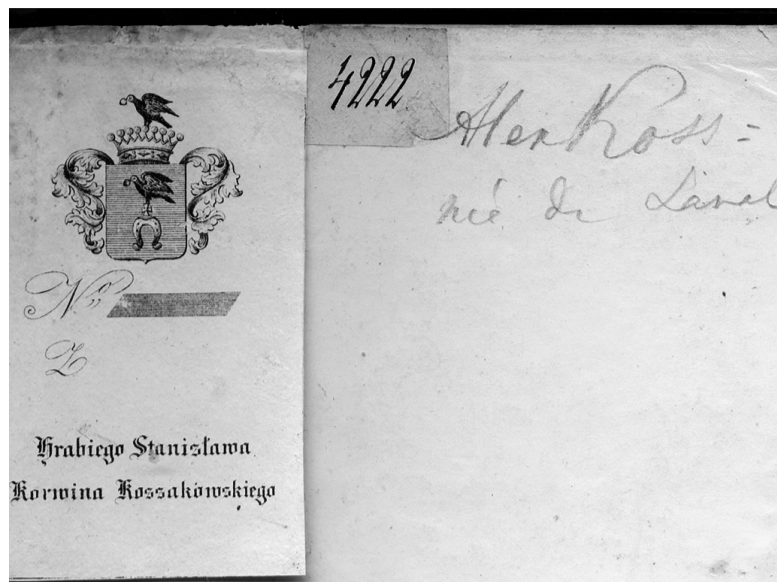 4222
Alex Koss=
née de Laval
No
Z
Hrabiego Stanisława
Korwina Kossakowskiego